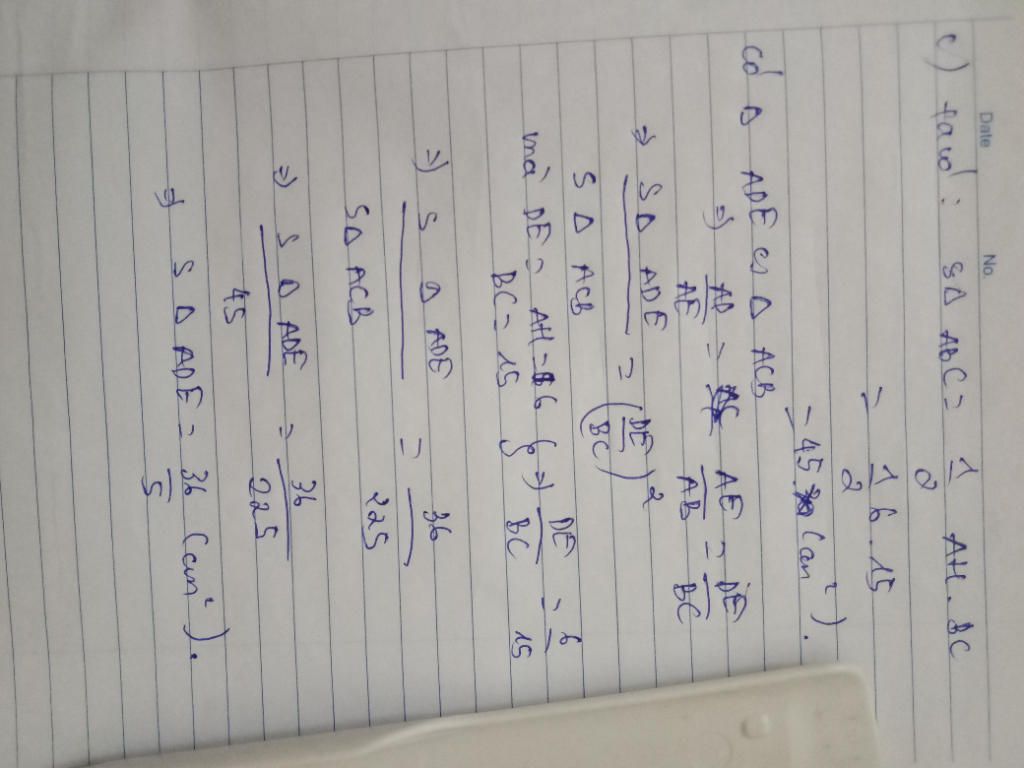 Date No.
c) ta có : S Δ ABC = 1/2 AH . BC
= 1/2 6 . 15
= 45 (cm²).
có Δ ADE ∽ Δ ACB
=) AD/AE = AE/AB = DE/BC
=) S Δ ADE / S Δ ACB = (DE/BC)²
mà DE = AH = 6
BC = 15 } =) DE/BC = 6/15
=) S Δ ADE / S Δ ACB = 36/225
=) S Δ ADE / 45 = 36/225
=) S Δ ADE = 36/5 (cm²).